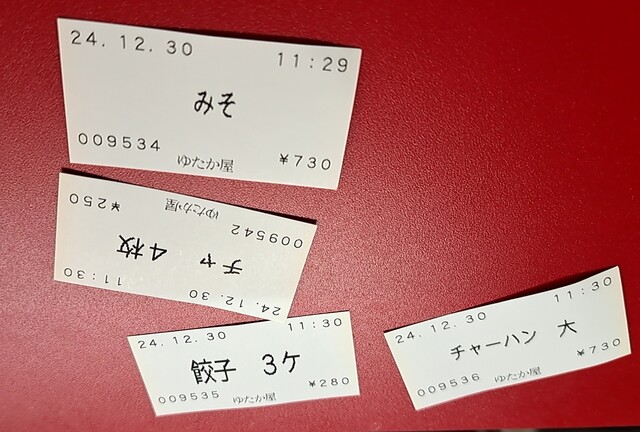 24.12.30 11:29
みそ
009534 ゆたか屋 ¥730
24.12.30 11:30
チャ 4枚
009542 ゆたか屋 ¥250
24.12.30 11:30
餃子 3ケ
009535 ゆたか屋 ¥280
24.12.30 11:30
チャーハン 大
009536 ゆたか屋 ¥730